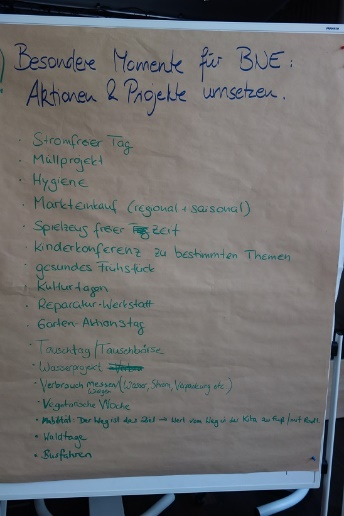 Besondere Momente für BNE:
Aktionen & Projekte umsetzen.
· Stromfreier Tag
· Müllprojekt
· Hygiene
· Markteinkauf (regional + saisonal)
· Spielzeug freie Zeit
· Kinderkonferenz zu bestimmten Themen
gesundes Frühstück
· Kulturtagen
· Reparatur-Werkstatt
· Garten-Aktionstag
· Tauschtag/Tauschbörse
· Wasserprojekt
· Verbrauch messen (Wasser, Strom, Verpackung etc.)
wiegen
· Vegetarische Woche
· Mobilität: Der Weg ist das Ziel → Wert vom Weg in die Kita zu Fuß/
· Waldtage
· Busfahren